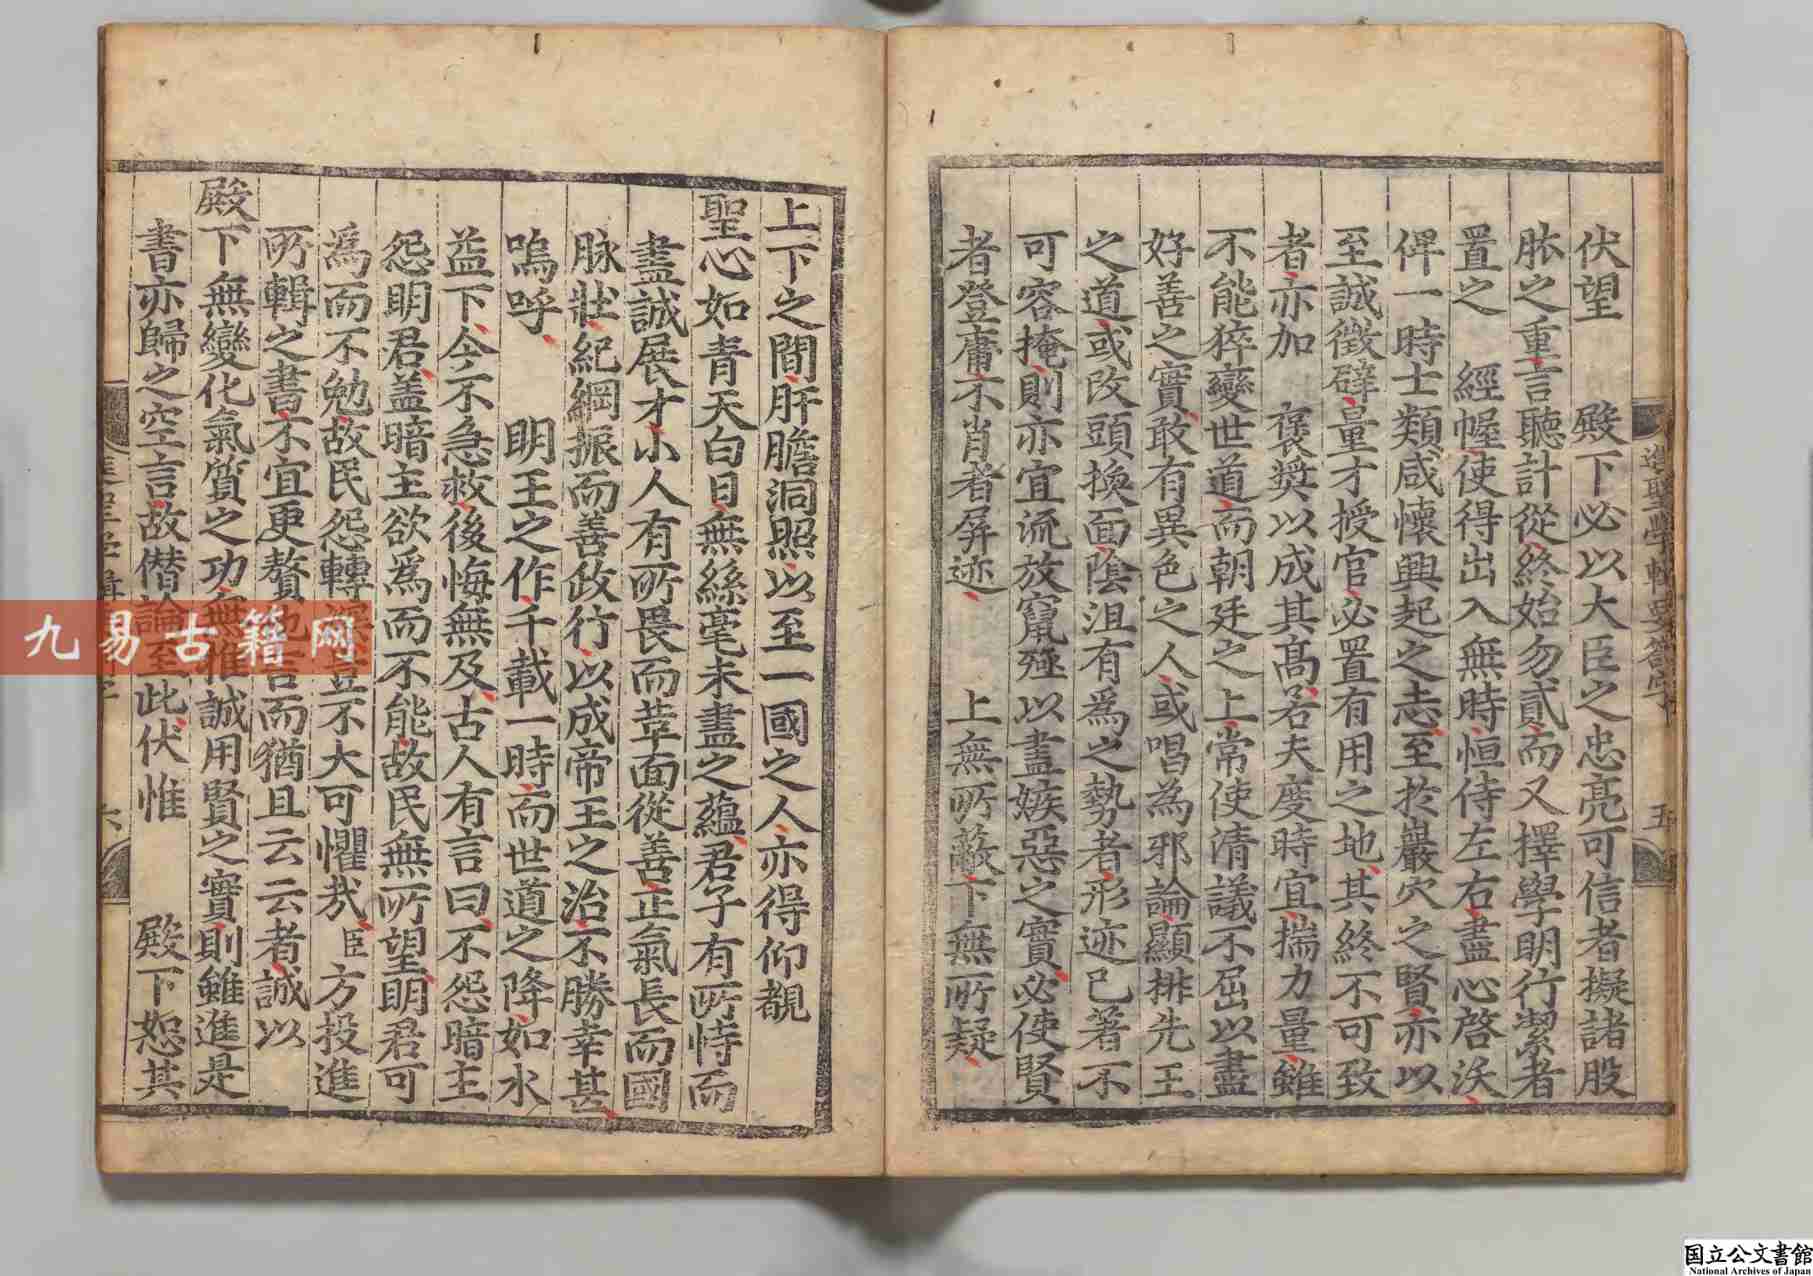 伏望　殿下必以大臣之忠亮可信者擬諸股
肱之重言聽計從終始勿貳而又擇學明行潔者
置之　經幄使得出入無時恒侍左右盡心啓沃
俾一時士類咸懷興起之志至於巖穴之賢亦以
至誠徵辟量才授官必置有用之地其終不可致
者亦加　褒奬以成其高若夫度時宜揣力量雖
不能猝變世道而朝廷之上常使清議不屈以盡
好善之實敢有異色之人或唱為邪論顯排先王
之道或改頭換面陰沮有爲之勢者形迹已著不
可容掩則亦宜流放竄殛以盡嫉惡之實必使賢
者登庸不肖者屏迹　上無所蔽下無所疑
進聖學輯要箚　五
上下之間肝膽洞照以至一國之人亦得仰覩
聖心如青天白日無絲毫未盡之蘊君子有所恃而
盡誠展才小人有所畏而革面從善正氣長而國
脉壯紀綱振而善政行以成帝王之治不勝幸甚
嗚呼　明王之作千載一時而世道之降如水
益下今不急救後悔無及古人有言曰不怨暗主
怨明君盖暗主欲爲而不能故民無所望明君可
爲而不勉故民怨轉深豈不大可懼哉臣方投進
所輯之書不宜更贅他言而猶且云云者誠以
殿下無變化氣質之功無推誠用賢之實則雖進是
書亦歸之空言故僭論至此伏惟　殿下恕其
六
九易古籍网
国立公文書館
National Archives of Japan